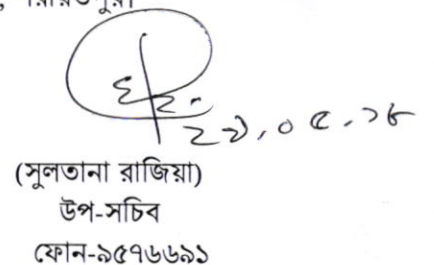 ২৩.০৫.১৮
(সুলতানা রাজিয়া)
উপ-সচিব
ফোন-৯৫৭৬৬৯১